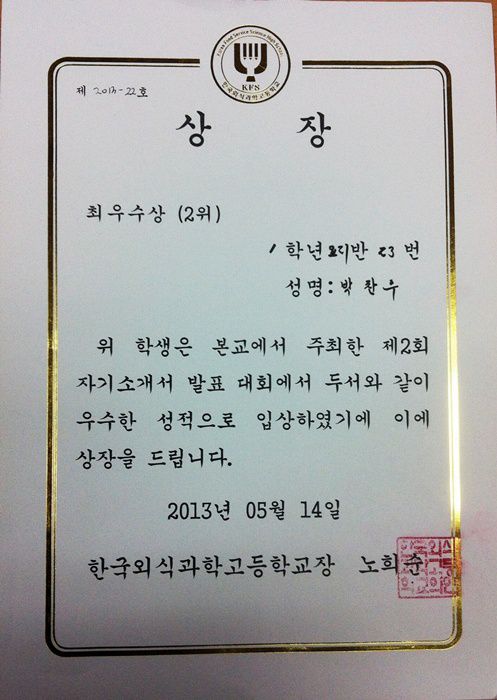 Korea Food Service Science High School
KFS
한국외식과학고등학교
제 2013-22호
상 장
최우수상 (2위)
1 학년 요리반 23 번
성명: 박찬우
위 학생은 본교에서 주최한 제2회
자기소개서 발표 대회에서 두서와 같이
우수한 성적으로 입상하였기에 이에
상장을 드립니다.
2013년 05월 14일
한국외식과학고등학교장 노희순